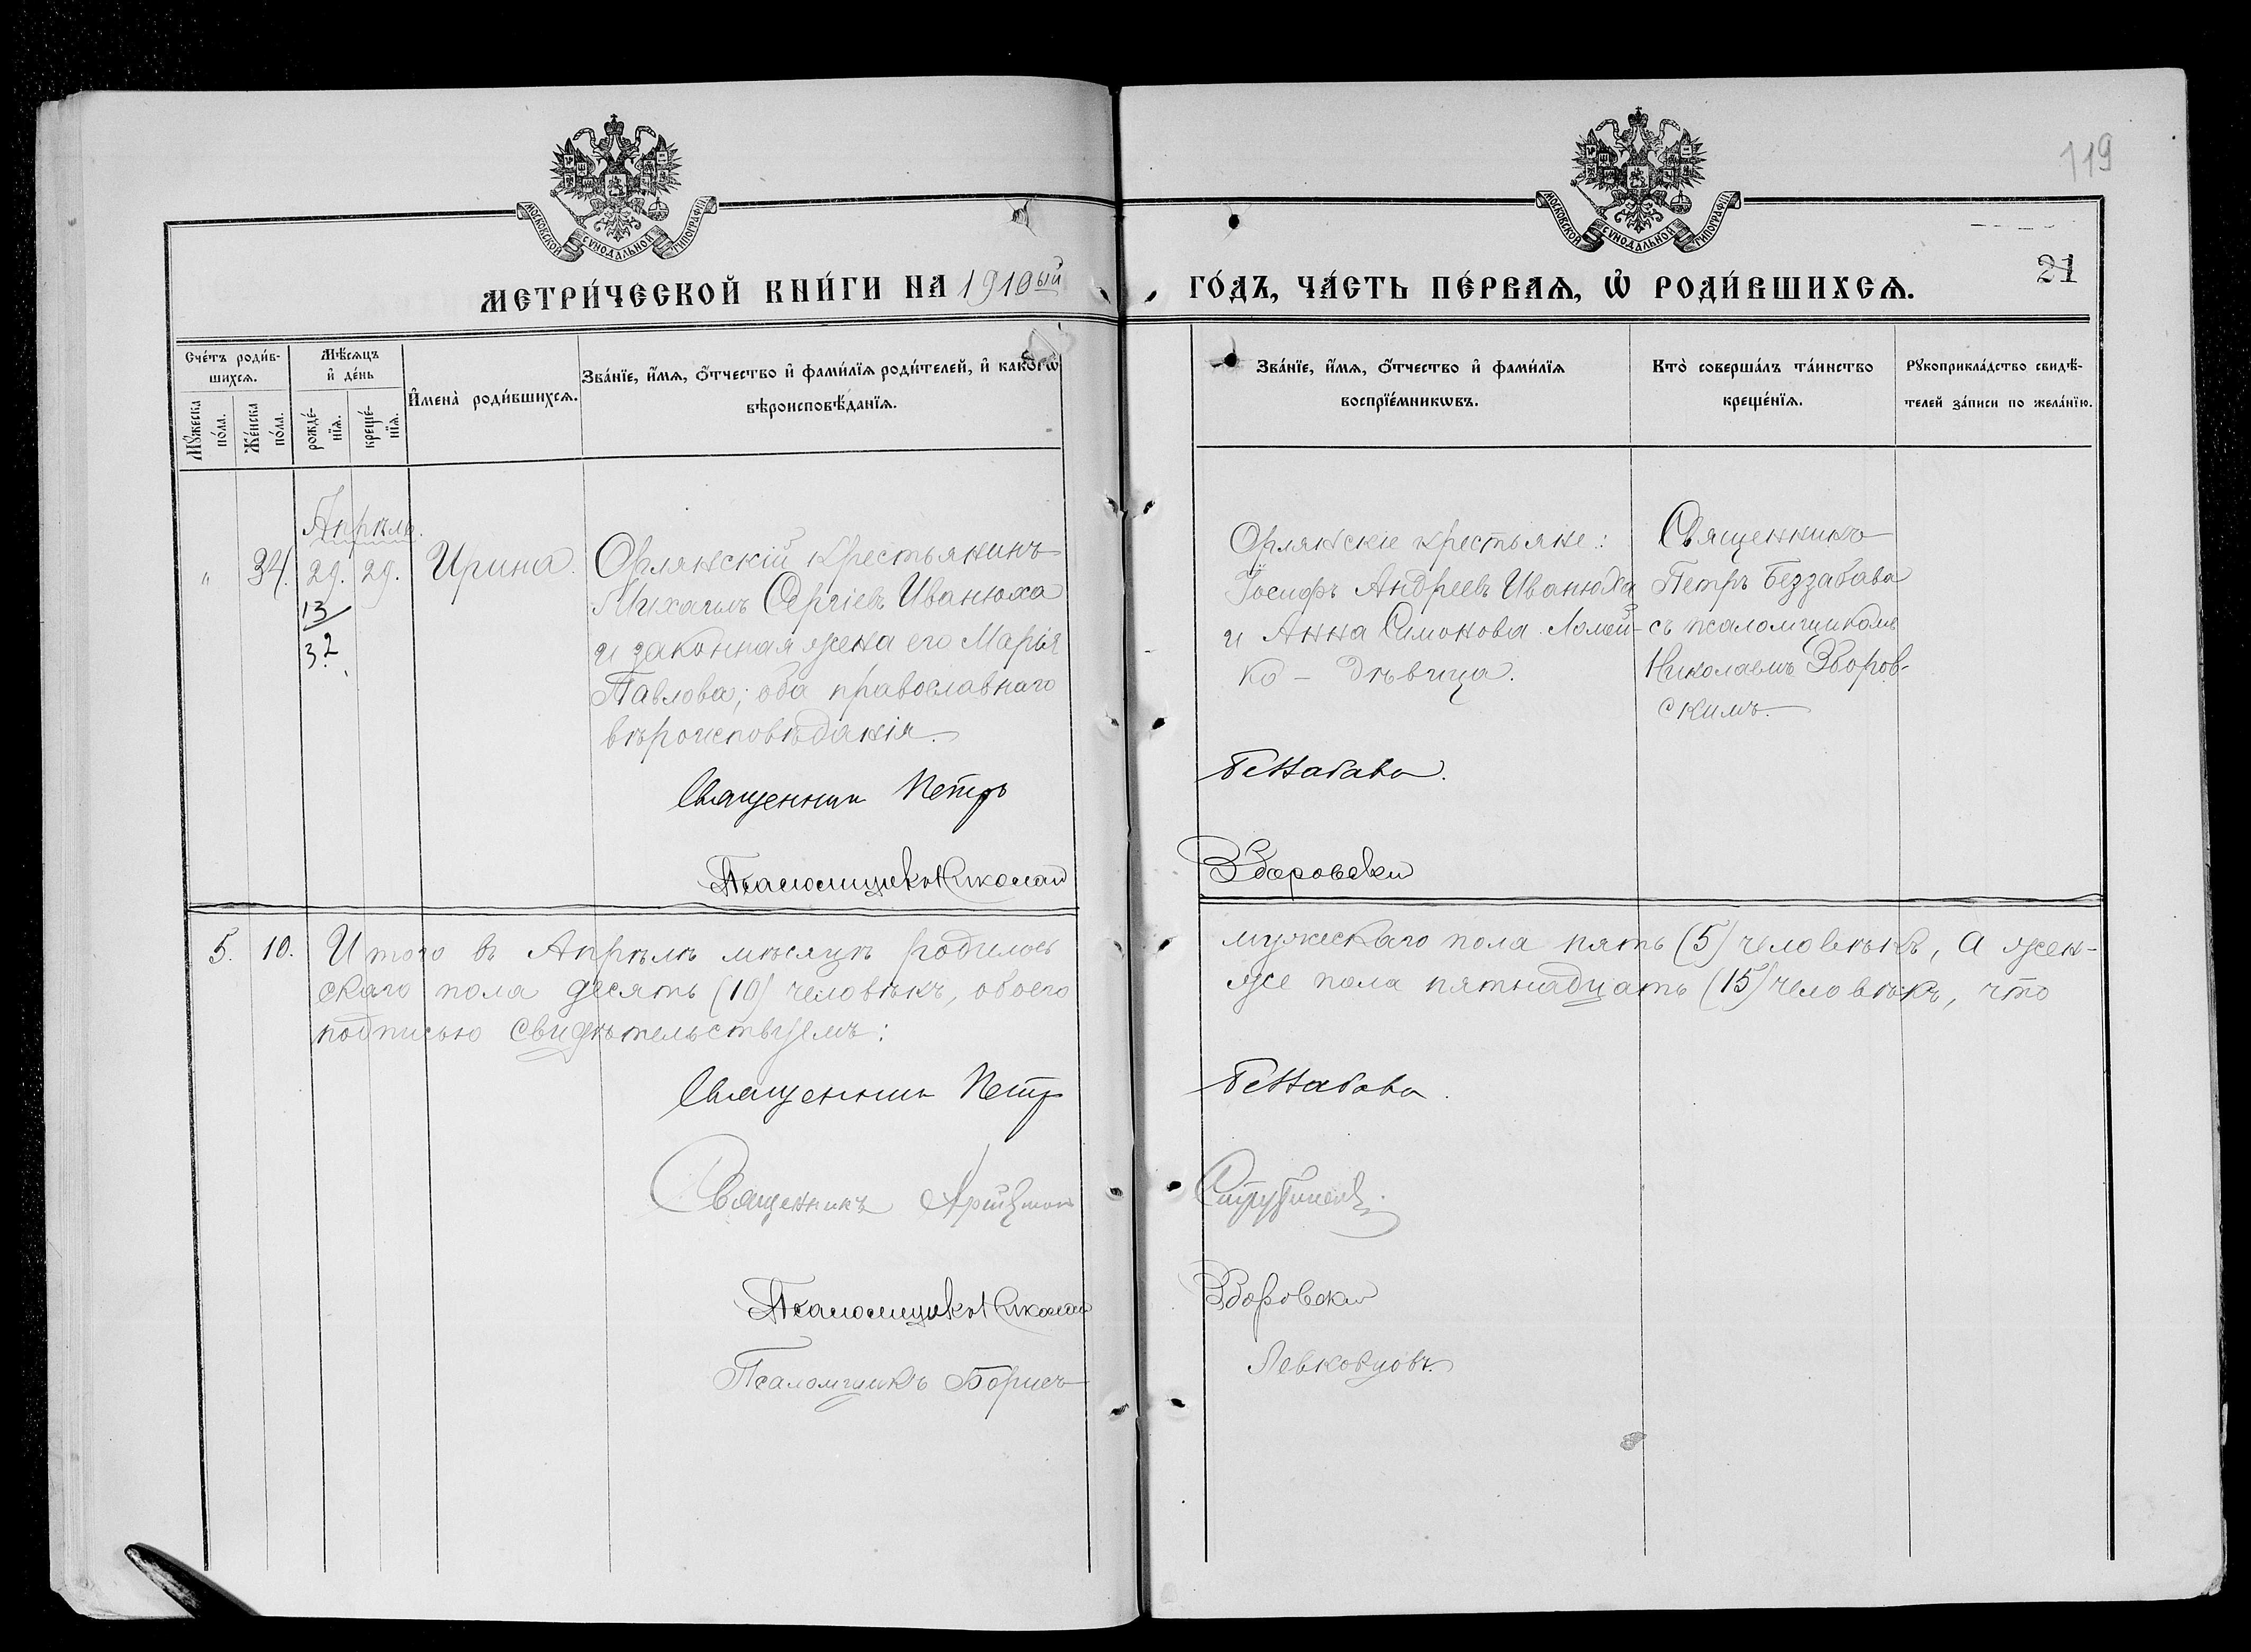 119
МОСКОВСКОЙ СѴНОДАЛЬНОЙ ТИПОГРАФІИ
МОСКОВСКОЙ СѴНОДАЛЬНОЙ ТИПОГРАФІИ
МЕТРИ́ЧЕСКОЙ КНИ́ГИ НА 1910ый ГО́ДЪ, ЧА́СТЬ ПЕ́РВАѦ, Ѡ҆ РОДИ́ВШИХСѦ.
21
Сче́тъ роди́в-
шихсѧ.
Мꙋ́жеска по́ла.
Же́нска по́ла.
Мѣ́сѧцъ и҆ де́нь
рожде́-нїѧ.
креще́-нїѧ.
И҆мена̀ роди́вшихсѧ.
Зва́нїе, и҆́мѧ, ѻ҆́тчество и҆ фами́лїѧ роди́телей, и҆ како́гѡ
вѣроисповѣ́данїѧ.
Зва́нїе, и҆́мѧ, ѻ҆́тчество и҆ фами́лїѧ
воспрїе́мникѡвъ.
Кто̀ соверша́лъ та́инство
креще́нїѧ.
Рꙋкоприкла́дство свидѣ́-
телей за́писи по жела́нїю.
Апрѣль.
" 34. 29. 29. Ирина.
13
32.
Орлянскій крестьянинъ
Михаилъ Сергіевъ Иванюха
и законная жена его Марія
Павлова; оба православнаго
вѣроисповѣданія.
Орлянскіе крестьяне:
Іосифъ Андреевъ Иванюха
и Анна Симонова Ломей-
ко - дѣвица.
Священникъ
Петръ Беззабава
съ псаломщикомъ
Николаемъ Зборов-
скимъ.
Священник Петръ Беззабава.
Псаломщикъ Николай Зборовскій
5. 10. Итого въ Апрѣлѣ мѣсяцѣ родилось мужескаго пола пять (5) человѣкъ, а жен-
скаго пола десять (10) человѣкъ, обоего же пола пятнадцать (15) человѣкъ, что
подписью свидѣтельствуемъ:
Священник Петр Беззабава.
Священникъ
Псаломщикъ Николай Зборовскій
Псаломщикъ Борисъ Левковцовъ.